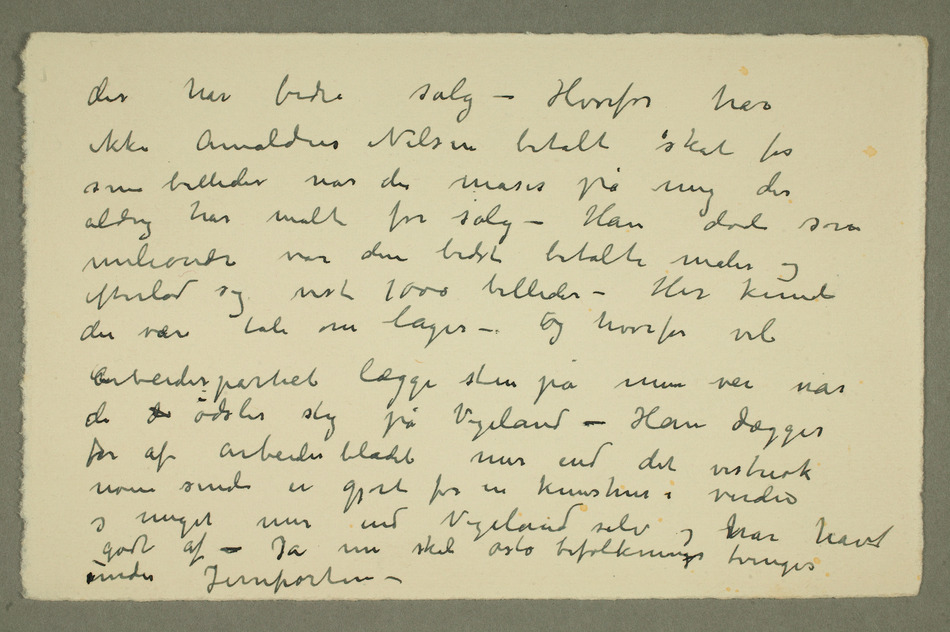 der har bedre salg – Hvorfor har
ikke Amaldus Nilsen betalt skat for
sine billeder når der mases på mig der
aldrig har malt for salg – Han døde som
milionær var den bedst betalte maler og
efterlod sig vist 1000 billeder – Her kunde
der være tale om lager – Og hvorfor vil
Arbeiderpartiet lægge sten på min vei når
de ødsler slig på Vigeland – Han dægges
for af Arbeiderbladet mer end det vistnok
noensinde er gjort for en kunstner i verden
og meget mer end Vigeland selv og har havt
godt af – Ja nu skal oslo befolkning tvinges
under Jernporten –